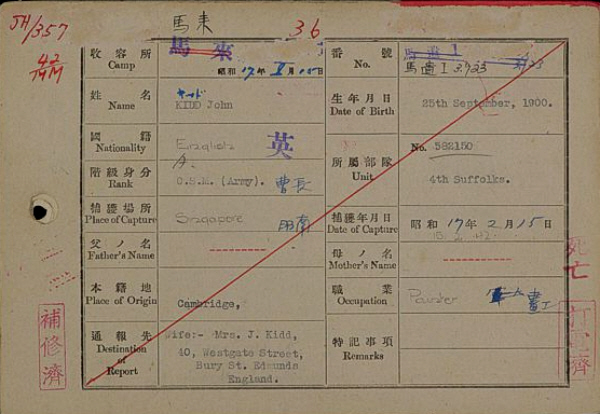 JH/357
42
馬来
36
収容所
Camp
馬来
昭和 17年 月 15日
番號
No.
馬直 I
馬直 I 3723
姓名
Name
KIDD John
生年月日
Date of Birth
25th September, 1900.
國籍
Nationality
English
英
所屬部隊
Unit
No. 582150
4th Suffolks.
階級身分
Rank
C.S.M. (Army).
曹長
捕獲場所
Place of Capture
Singapore
昭南
捕獲年月日
Date of Capture
昭和 17年 2月 15日
15. 2. 42.
父ノ名
Father's Name
母ノ名
Mother's Name
本籍地
Place of Origin
Cambridge,
職業
Occupation
通報先
Destination of Report
Wife:- Mrs. J. Kidd,
40, Westgate Street,
Bury St. Edmunds
England.
特記事項
Remarks
死亡
補修濟